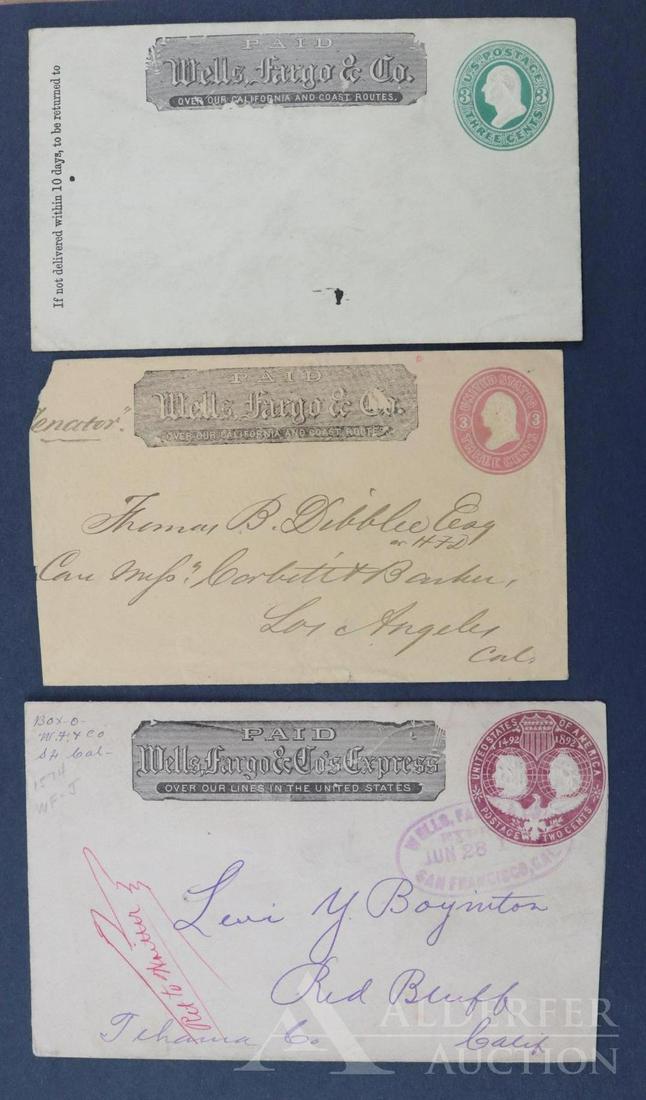 PAID
Wells, Fargo & Co.
OVER OUR CALIFORNIA AND COAST ROUTES.
U.S. POSTAGE
3 3
THREE CENTS
If not delivered within 10 days, to be returned to
PAID
Wells, Fargo & Co.
OVER OUR CALIFORNIA AND COAST ROUTES.
UNITED STATES
3 3
THREE CENTS
enator".
Thomas B. Dibblee Esq
or H F D
Care Mess". Corbitt & Barker,
Los Angeles
Cal.
Box-O-
W. F. & Co
Cal-
1574
WF-J
PAID
Wells, Fargo & Co's Express
OVER OUR LINES IN THE UNITED STATES
UNITED STATES OF AMERICA
1492 1892
POSTAGE TWO CENTS
WELLS, FA
JUN 28
SAN FRANCISCO, CAL
Ret to Writer
Levi Y. Boynton
Red Bluff
Tehama Co Calif
ALDERFER
AUCTION